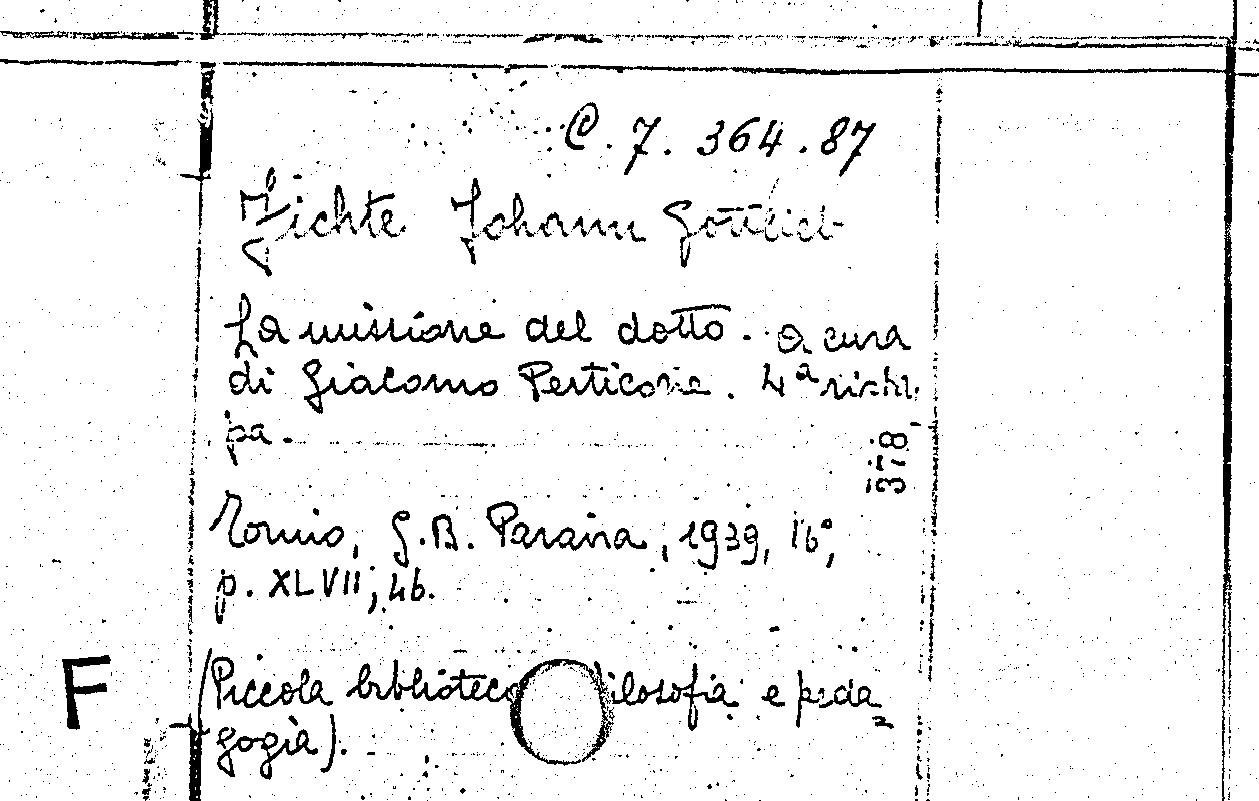 C. 7. 364.87
Fichte Johann Gottlieb
La missione del dotto. A cura
di Giacomo Perticone. 4ª ristam
pa.
378
Torino, G.B. Paravia, 1939, 16°,
p. XLVII; 46.
F
(Piccola biblioteca filosofia e peda=
gogia).